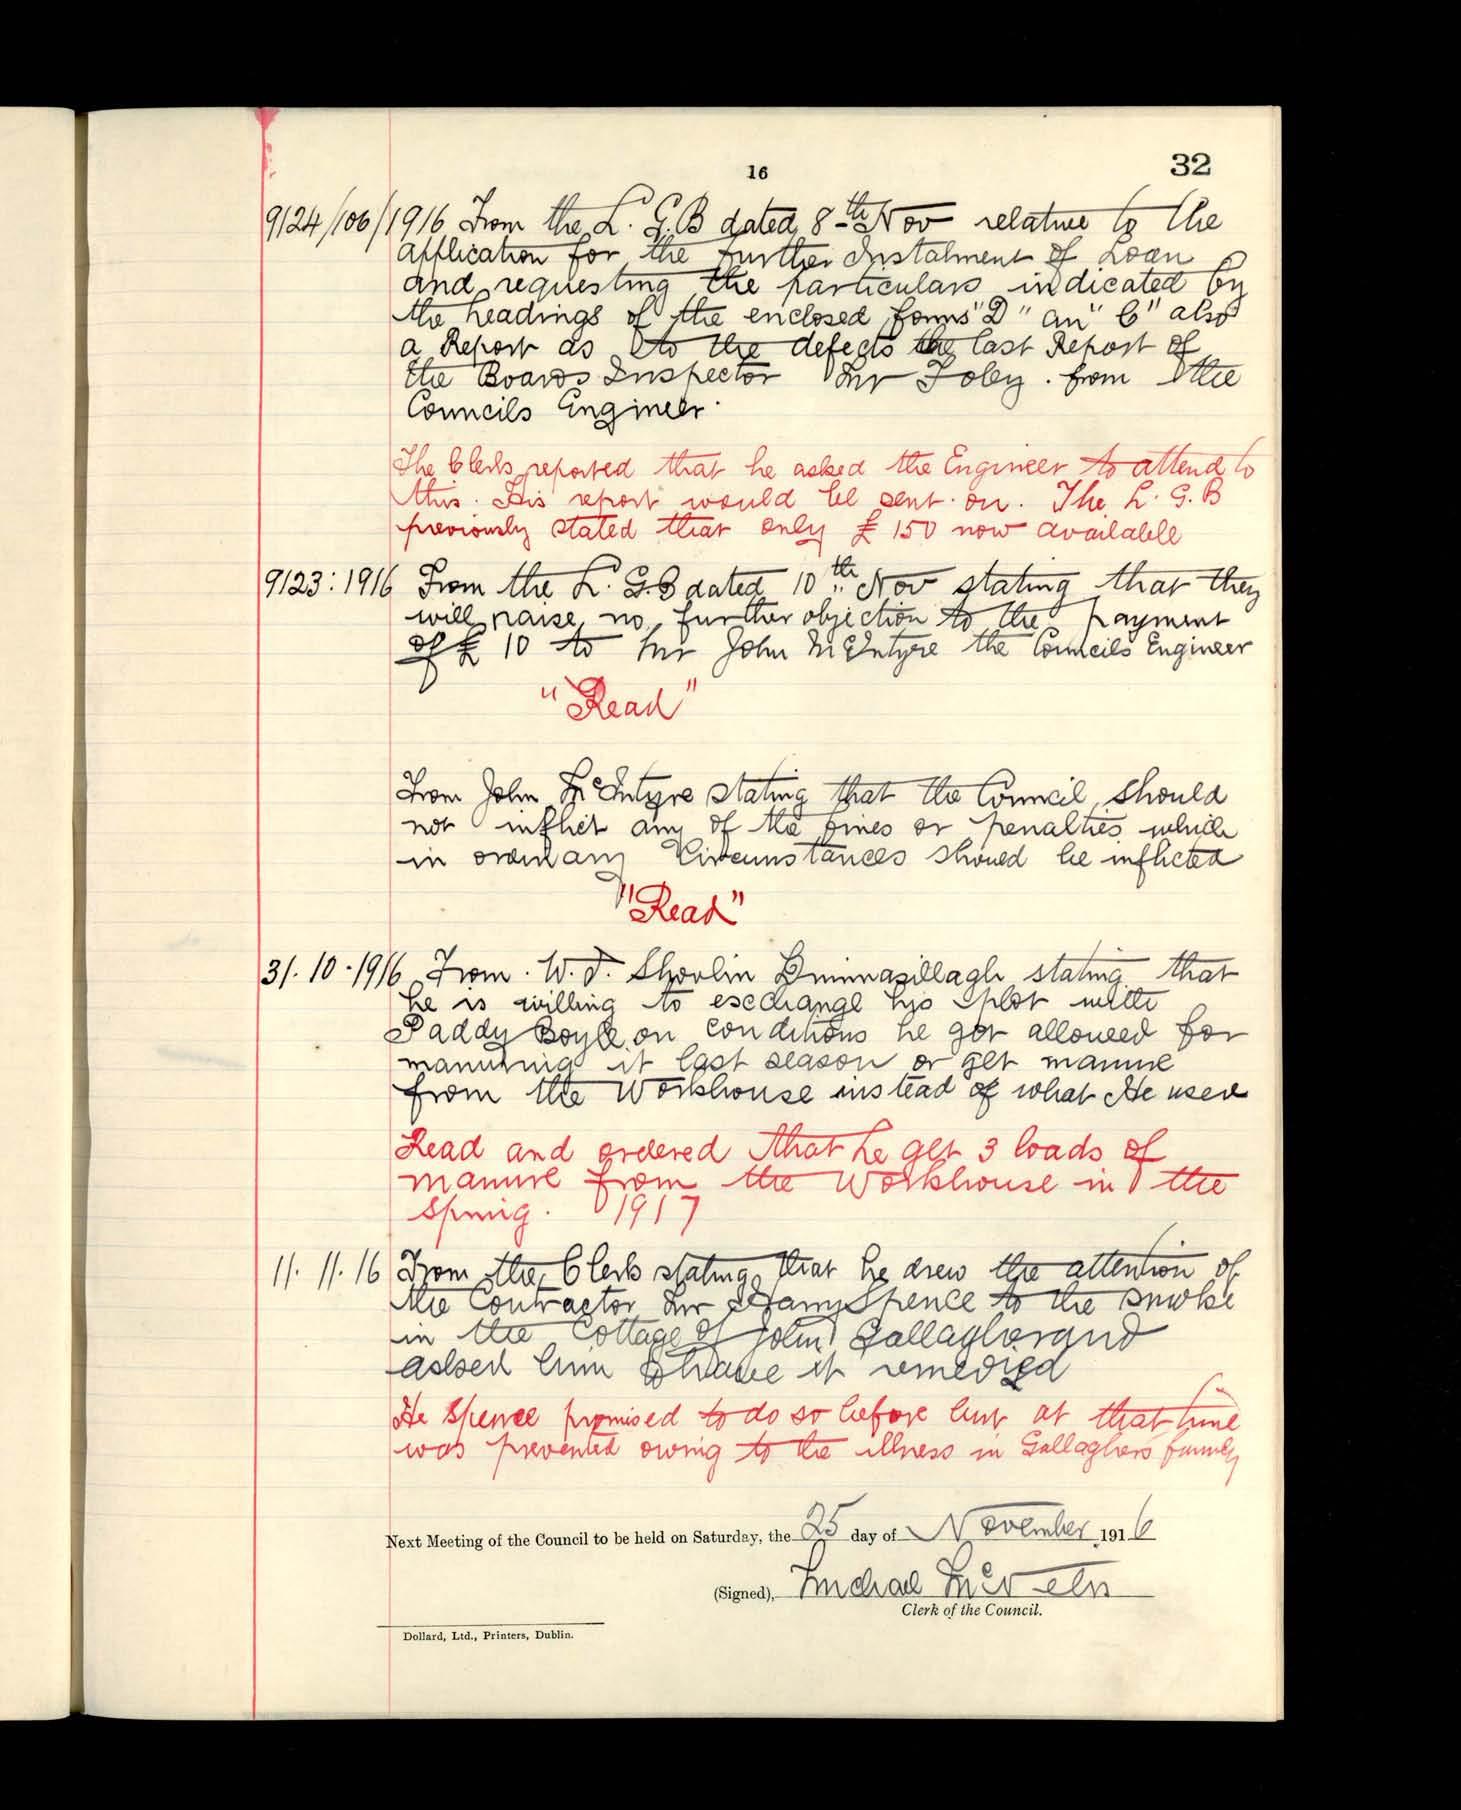 16
32
9124/106/1916 From the L. G.B dated 8th Nov relative to the
application for the further Instalment of Loan
and requesting the particulars indicated by
the headings of the enclosed forms "D" an "C" also
a Report as to the defects the last Report of
the Boards Inspector Mr Foley. from the
Councils Engineer.
The Clerk reported that he asked the Engineer to attend to
this. His report would be sent on. The L. G. B
previously stated that only £150 now available
9123:1916 From the L. G.B dated 10th Nov stating that they
will raise no further objection to the payment
of £10 to Mr John McEntyre the Councils Engineer
"Read"
From John McIntyre stating that the Council should
not inflict any of the fines or penalties which
in ordinary Circumstances should be inflicted
"Read"
31.10.1916 From. W. J. Shovlin Drimnasillagh stating that
he is willing to exchange his plot with
Paddy Boyle on conditions he got allowed for
manuring it last season or get manure
from the Workhouse instead of what He used
Read and ordered that he get 3 loads of
manure from the Workhouse in the
Spring. 1917
11. 11. 16 From the Clerk stating that he drew the attention of
the Contractor Mr Harry Spence to the smoke
in the Cottage of John Gallagher and
asked him to have it remedied
He Spence promised to do so before but at that time
was prevented owing to the illness in Gallaghers family
Next Meeting of the Council to be held on Saturday, the 25 day of November 1916
(Signed), Michael McNelis
Clerk of the Council.
Dollard, Ltd., Printers, Dublin.